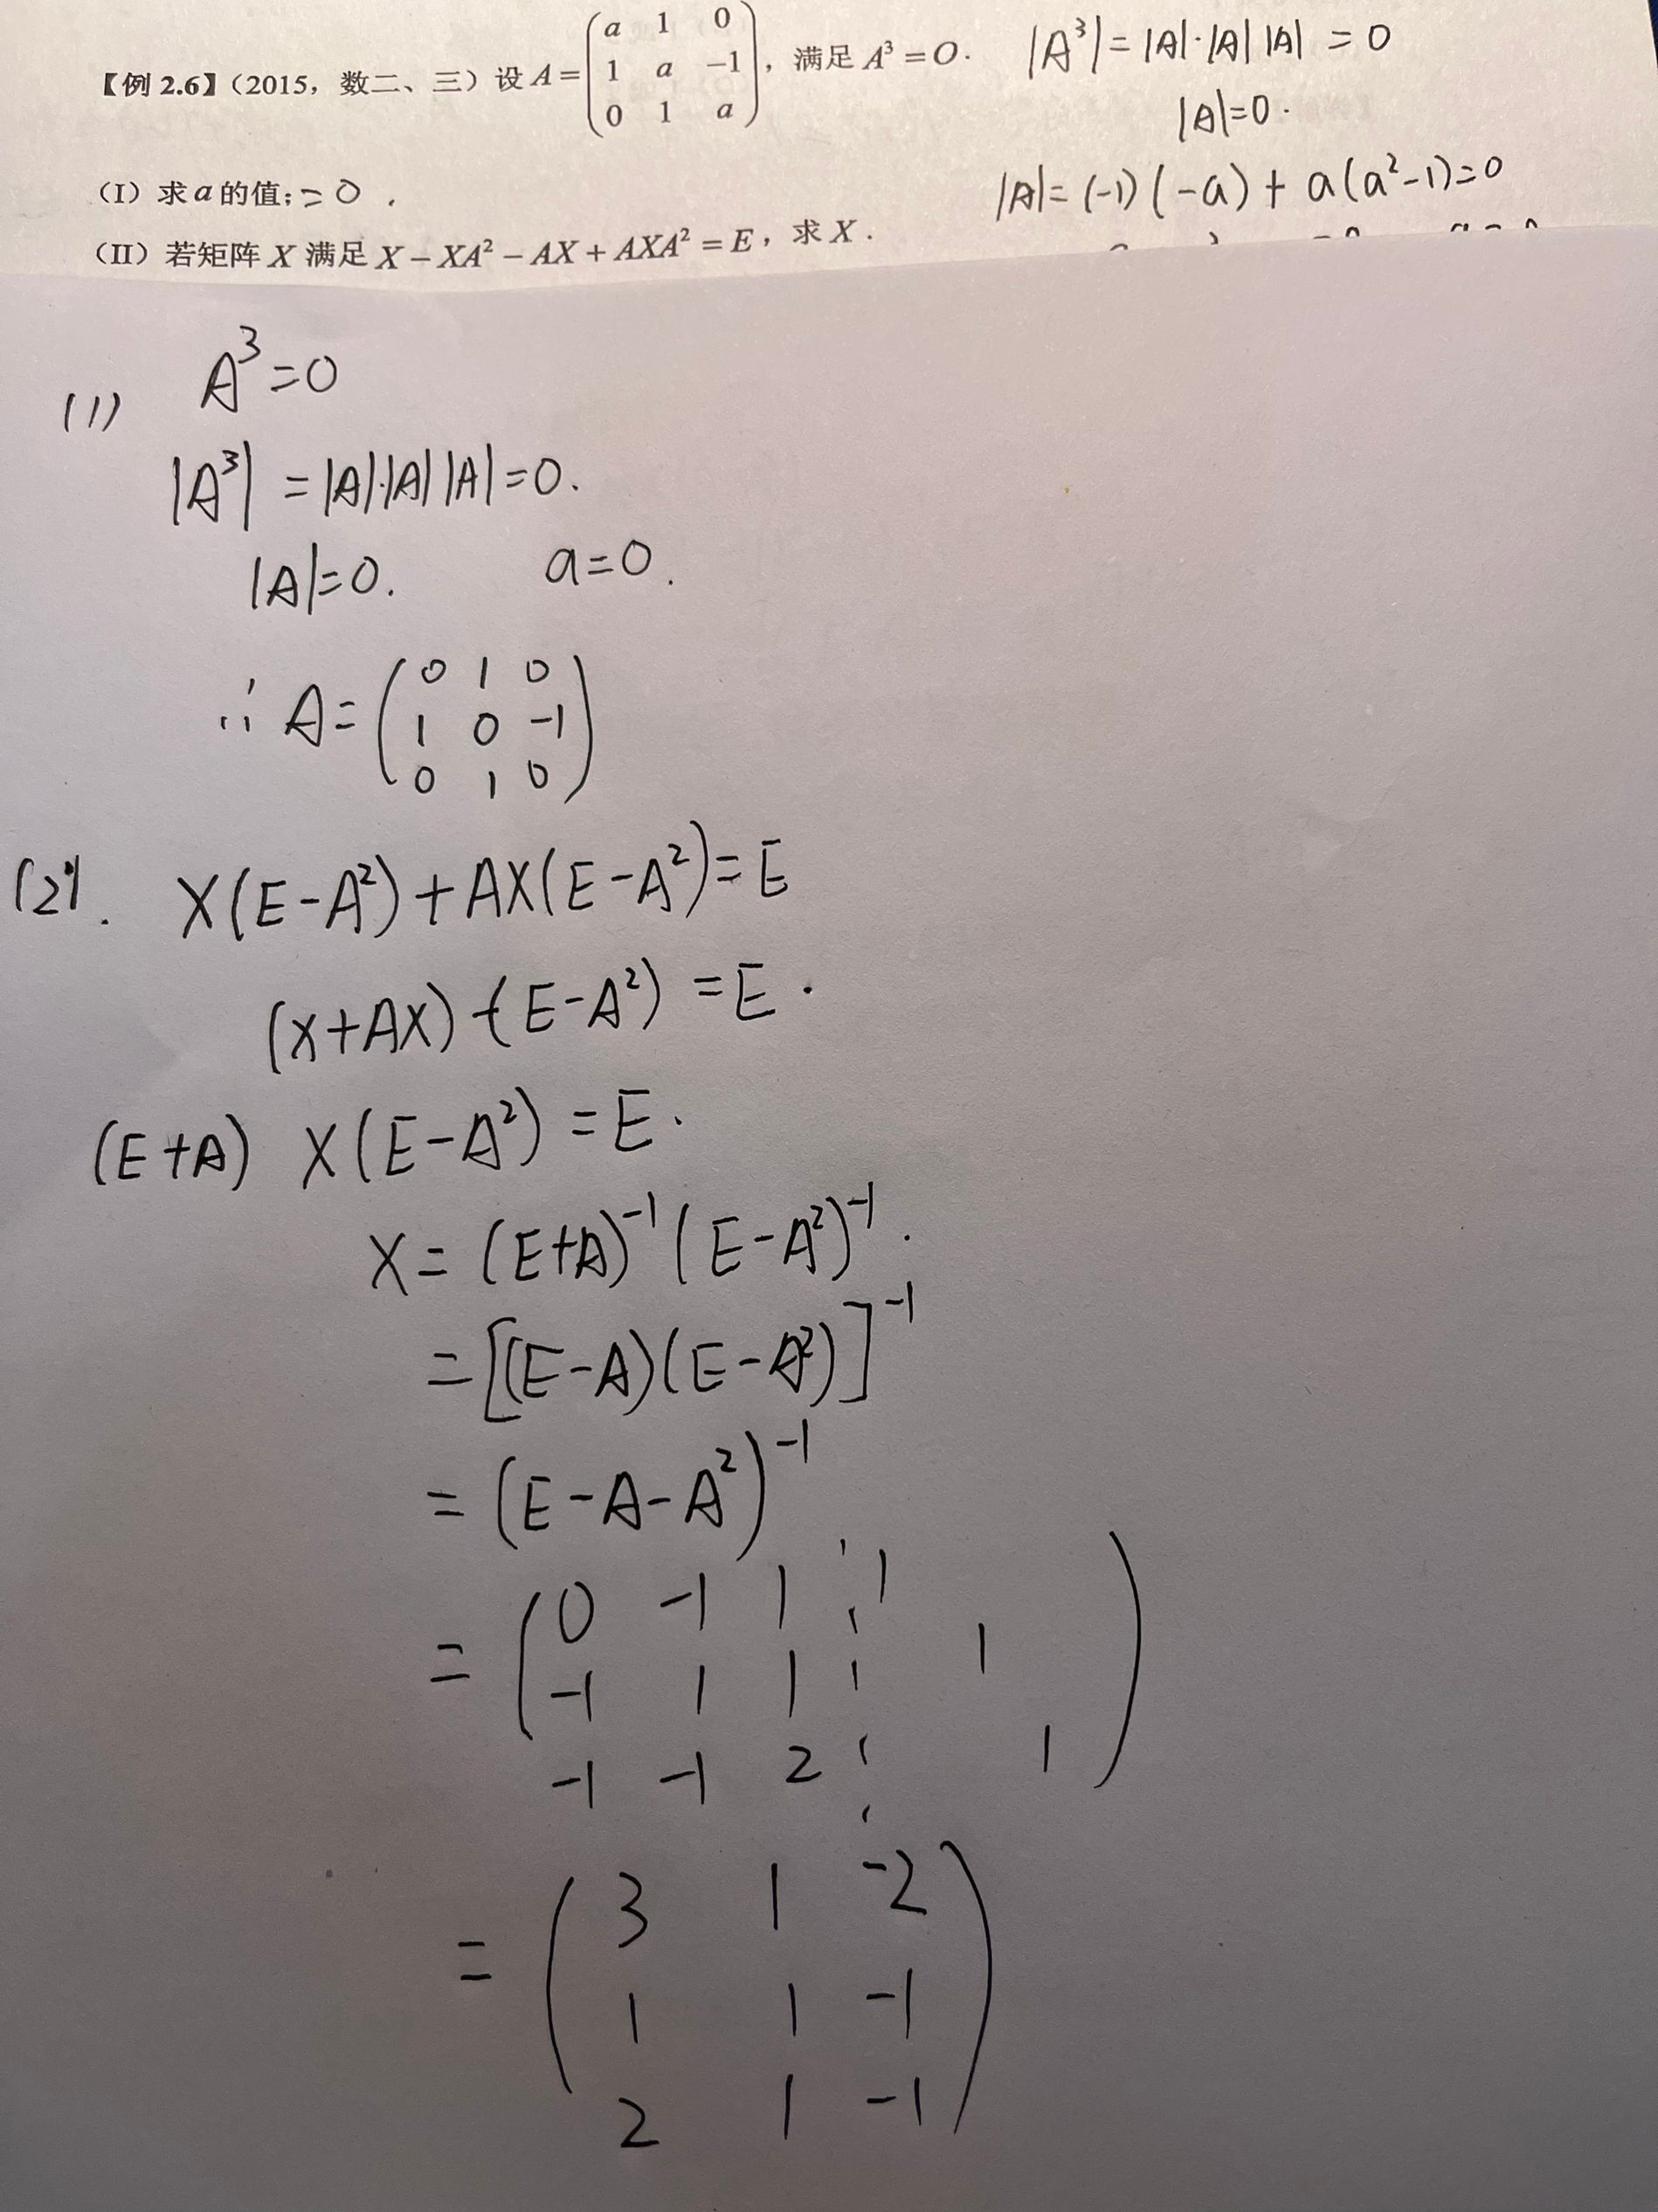 【例 2.6】(2015，数二、三) 设 A = (a 1 0; 1 a -1; 0 1 a)，满足 A³ = O.
|A³| = |A|·|A| |A| = 0
|A|=0.
(I) 求 a 的值; = 0 .
|A| = (-1)(-a) + a(a²-1)=0
(II) 若矩阵 X 满足 X - XA² - AX + AXA² = E，求 X .
(1) A³=0
|A³| = |A|·|A| |A| = 0.
|A|=0. a=0.
∴ A = (0 1 0; 1 0 -1; 0 1 0)
(2). X(E-A²) + AX(E-A²) = E
(X+AX) (E-A²) = E .
(E+A) X(E-A²) = E .
X = (E+A)⁻¹ (E-A²)⁻¹ .
= [(E-A)(E-A²)]⁻¹
= (E-A-A²)⁻¹
= (0 -1 1 ¦ 1
-1 1 1 ¦ 1
-1 -1 2 ¦ 1)
= (3 1 -2
1 1 -1
2 1 -1)